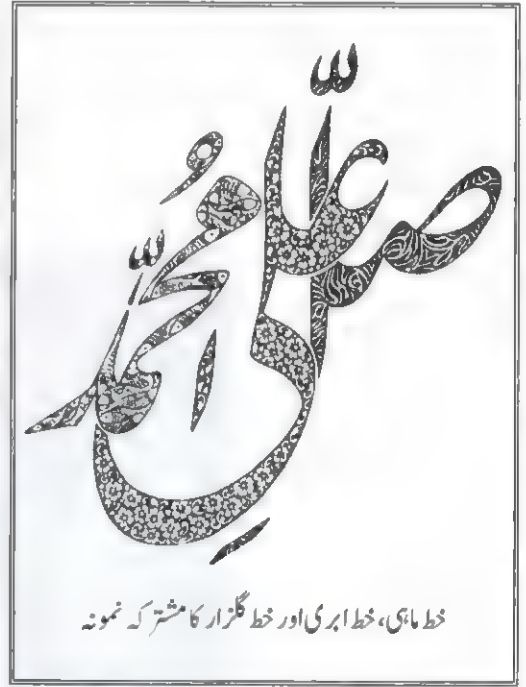 صَلِّ عَلیٰ مُحَمَّد
خط ماہی، خط ابری اور خط گلزار کا مشترکہ نمونہ